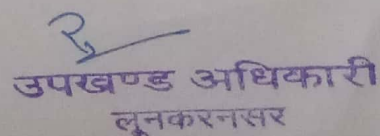 उपखण्ड अधिकारी
लूनकरनसर